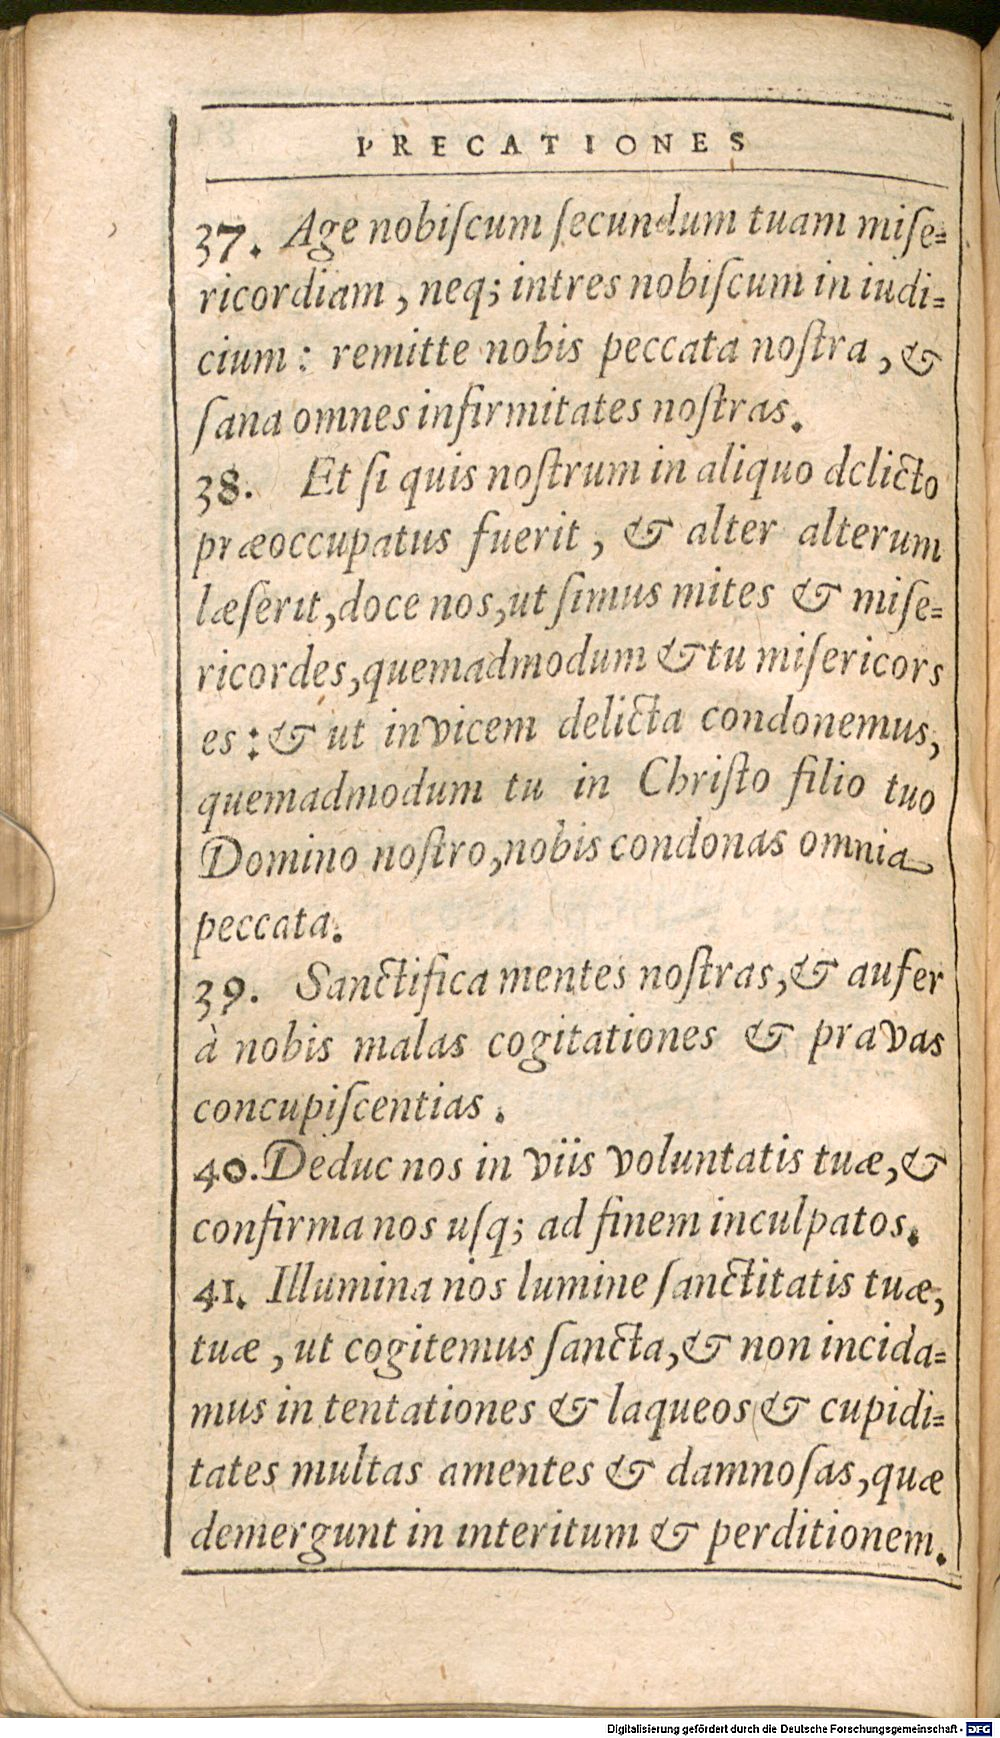 PRECATIONES
37. Age nobiſcum ſecundum tuam miſe-
ricordiam, neq; intres nobiſcum in iudi-
cium: remitte nobis peccata noſtra, &
ſana omnes infirmitates noſtras.
38. Et ſi quis noſtrum in aliquo delicto
præoccupatus fuerit, & alter alterum
læſerit, doce nos, ut ſimus mites & miſe-
ricordes, quemadmodum & tu miſericors
es: & ut invicem delicta condonemus,
quemadmodum tu in Chriſto filio tuo
Domino noſtro, nobis condonas omnia
peccata.
39. Sanctifica mentes noſtras, & aufer
à nobis malas cogitationes & pravas
concupiſcentias.
40. Deduc nos in viis voluntatis tuæ, &
confirma nos uſq; ad finem inculpatos.
41. Illumina nos lumine ſanctitatis tuæ,
tuæ, ut cogitemus ſancta, & non incida-
mus in tentationes & laqueos & cupidi-
tates multas amentes & damnoſas, quæ
demergunt in interitum & perditionem.
Digitalisierung gefördert durch die Deutsche Forschungsgemeinschaft - DFG